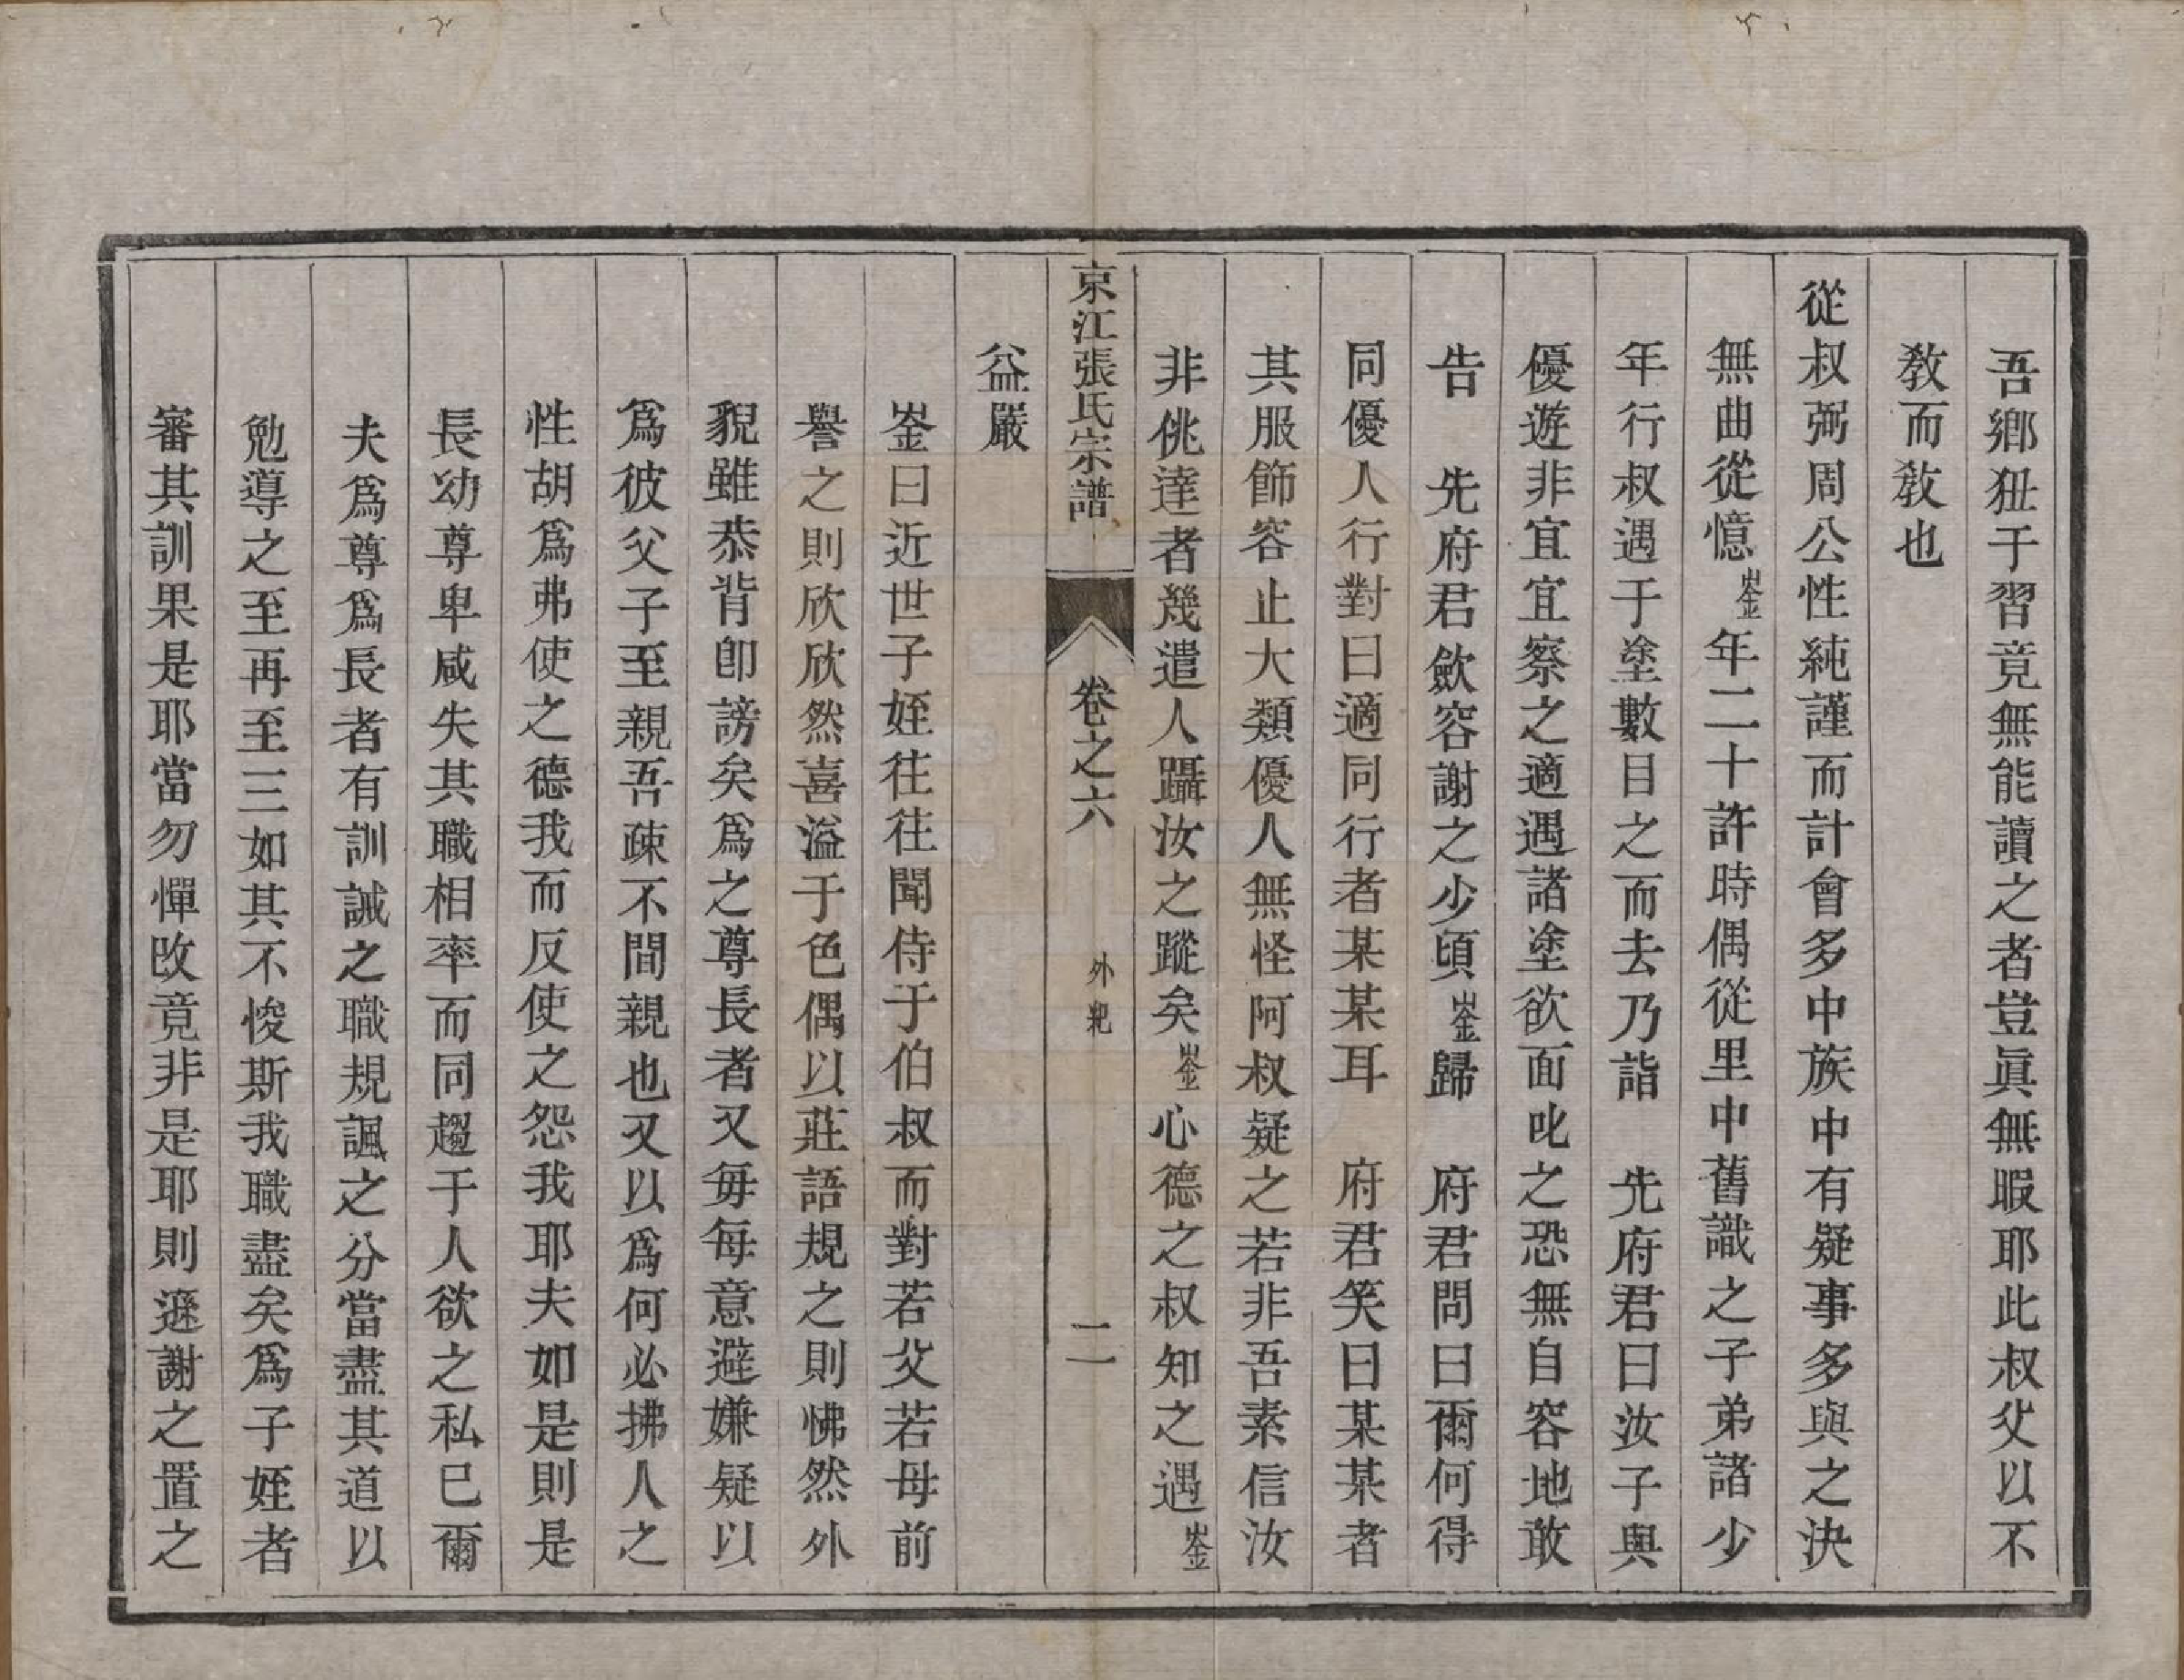 吾鄉狃于習竟無能讀之者豈眞無暇耶此叔父以不
敎而敎也
從叔弼周公性純謹而計會多中族中有疑事多與之決
無曲從憶崟年二十許時偶從里中舊識之子弟諸少
年行叔遇于塗數目之而去乃詣　先府君曰汝子與
優遊非宜宜察之適遇諸塗欲面叱之恐無自容地敢
告　先府君歛容謝之少頃崟歸　府君問曰爾何得
同優人行對曰適同行者某某耳　府君笑曰某某者
其服飾容止大類優人無怪阿叔疑之若非吾素信汝
非佻達者幾遣人躡汝之蹤矣崟心德之叔知之遇崟
京江張氏宗譜　卷之六　外紀　二
益嚴
崟曰近世子姪往往聞侍于伯叔而對若父若母前
譽之則欣欣然喜溢于色偶以莊語規之則怫然外
貎雖恭背卽謗矣爲之尊長者又每每意避嫌疑以
爲彼父子至親吾疎不間親也又以爲何必拂人之
性胡爲弗使之德我而反使之怨我耶夫如是則是
長幼尊卑咸失其職相率而同趨于人欲之私已爾
夫爲尊爲長者有訓誡之職規諷之分當盡其道以
勉導之至再至三如其不悛斯我職盡矣爲子姪者
審其訓果是耶當勿憚改竟非是耶則遜謝之置之